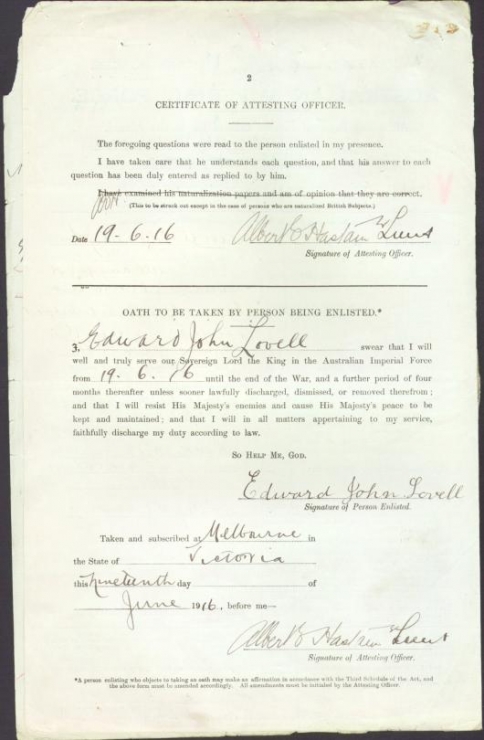 2
CERTIFICATE OF ATTESTING OFFICER.
The foregoing questions were read to the person enlisted in my presence.
I have taken care that he understands each question, and that his answer to each
question has been duly entered as replied to by him.
I have examined his naturalization papers and am of opinion that they are correct.
(This to be struck out except in the case of persons who are naturalized British Subjects.)
Date 19.6.16 Albert E Hastain Lieut
Signature of Attesting Officer.
OATH TO BE TAKEN BY PERSON BEING ENLISTED.*
Edward John Lovell swear that I will
well and truly serve our Sovereign Lord the King in the Australian Imperial Force
from 19. 6. 16 until the end of the War, and a further period of four
months thereafter unless sooner lawfully discharged, dismissed, or removed therefrom ;
and that I will resist His Majesty's enemies and cause His Majesty's peace to be
kept and maintained ; and that I will in all matters appertaining to my service,
faithfully discharge my duty according to law.
SO HELP ME, GOD.
Edward John Lovell
Signature of Person Enlisted.
Taken and subscribed at Melbourne in
the State of Victoria
this Nineteenth day of
June 1916, before me—
Albert E Hastain Lieut
Signature of Attesting Officer.
*A person enlisting who objects to taking an oath may make an affirmation in accordance with the Third Schedule of the Act, and
the above form must be amended accordingly. All amendments must be initialed by the Attesting Officer.